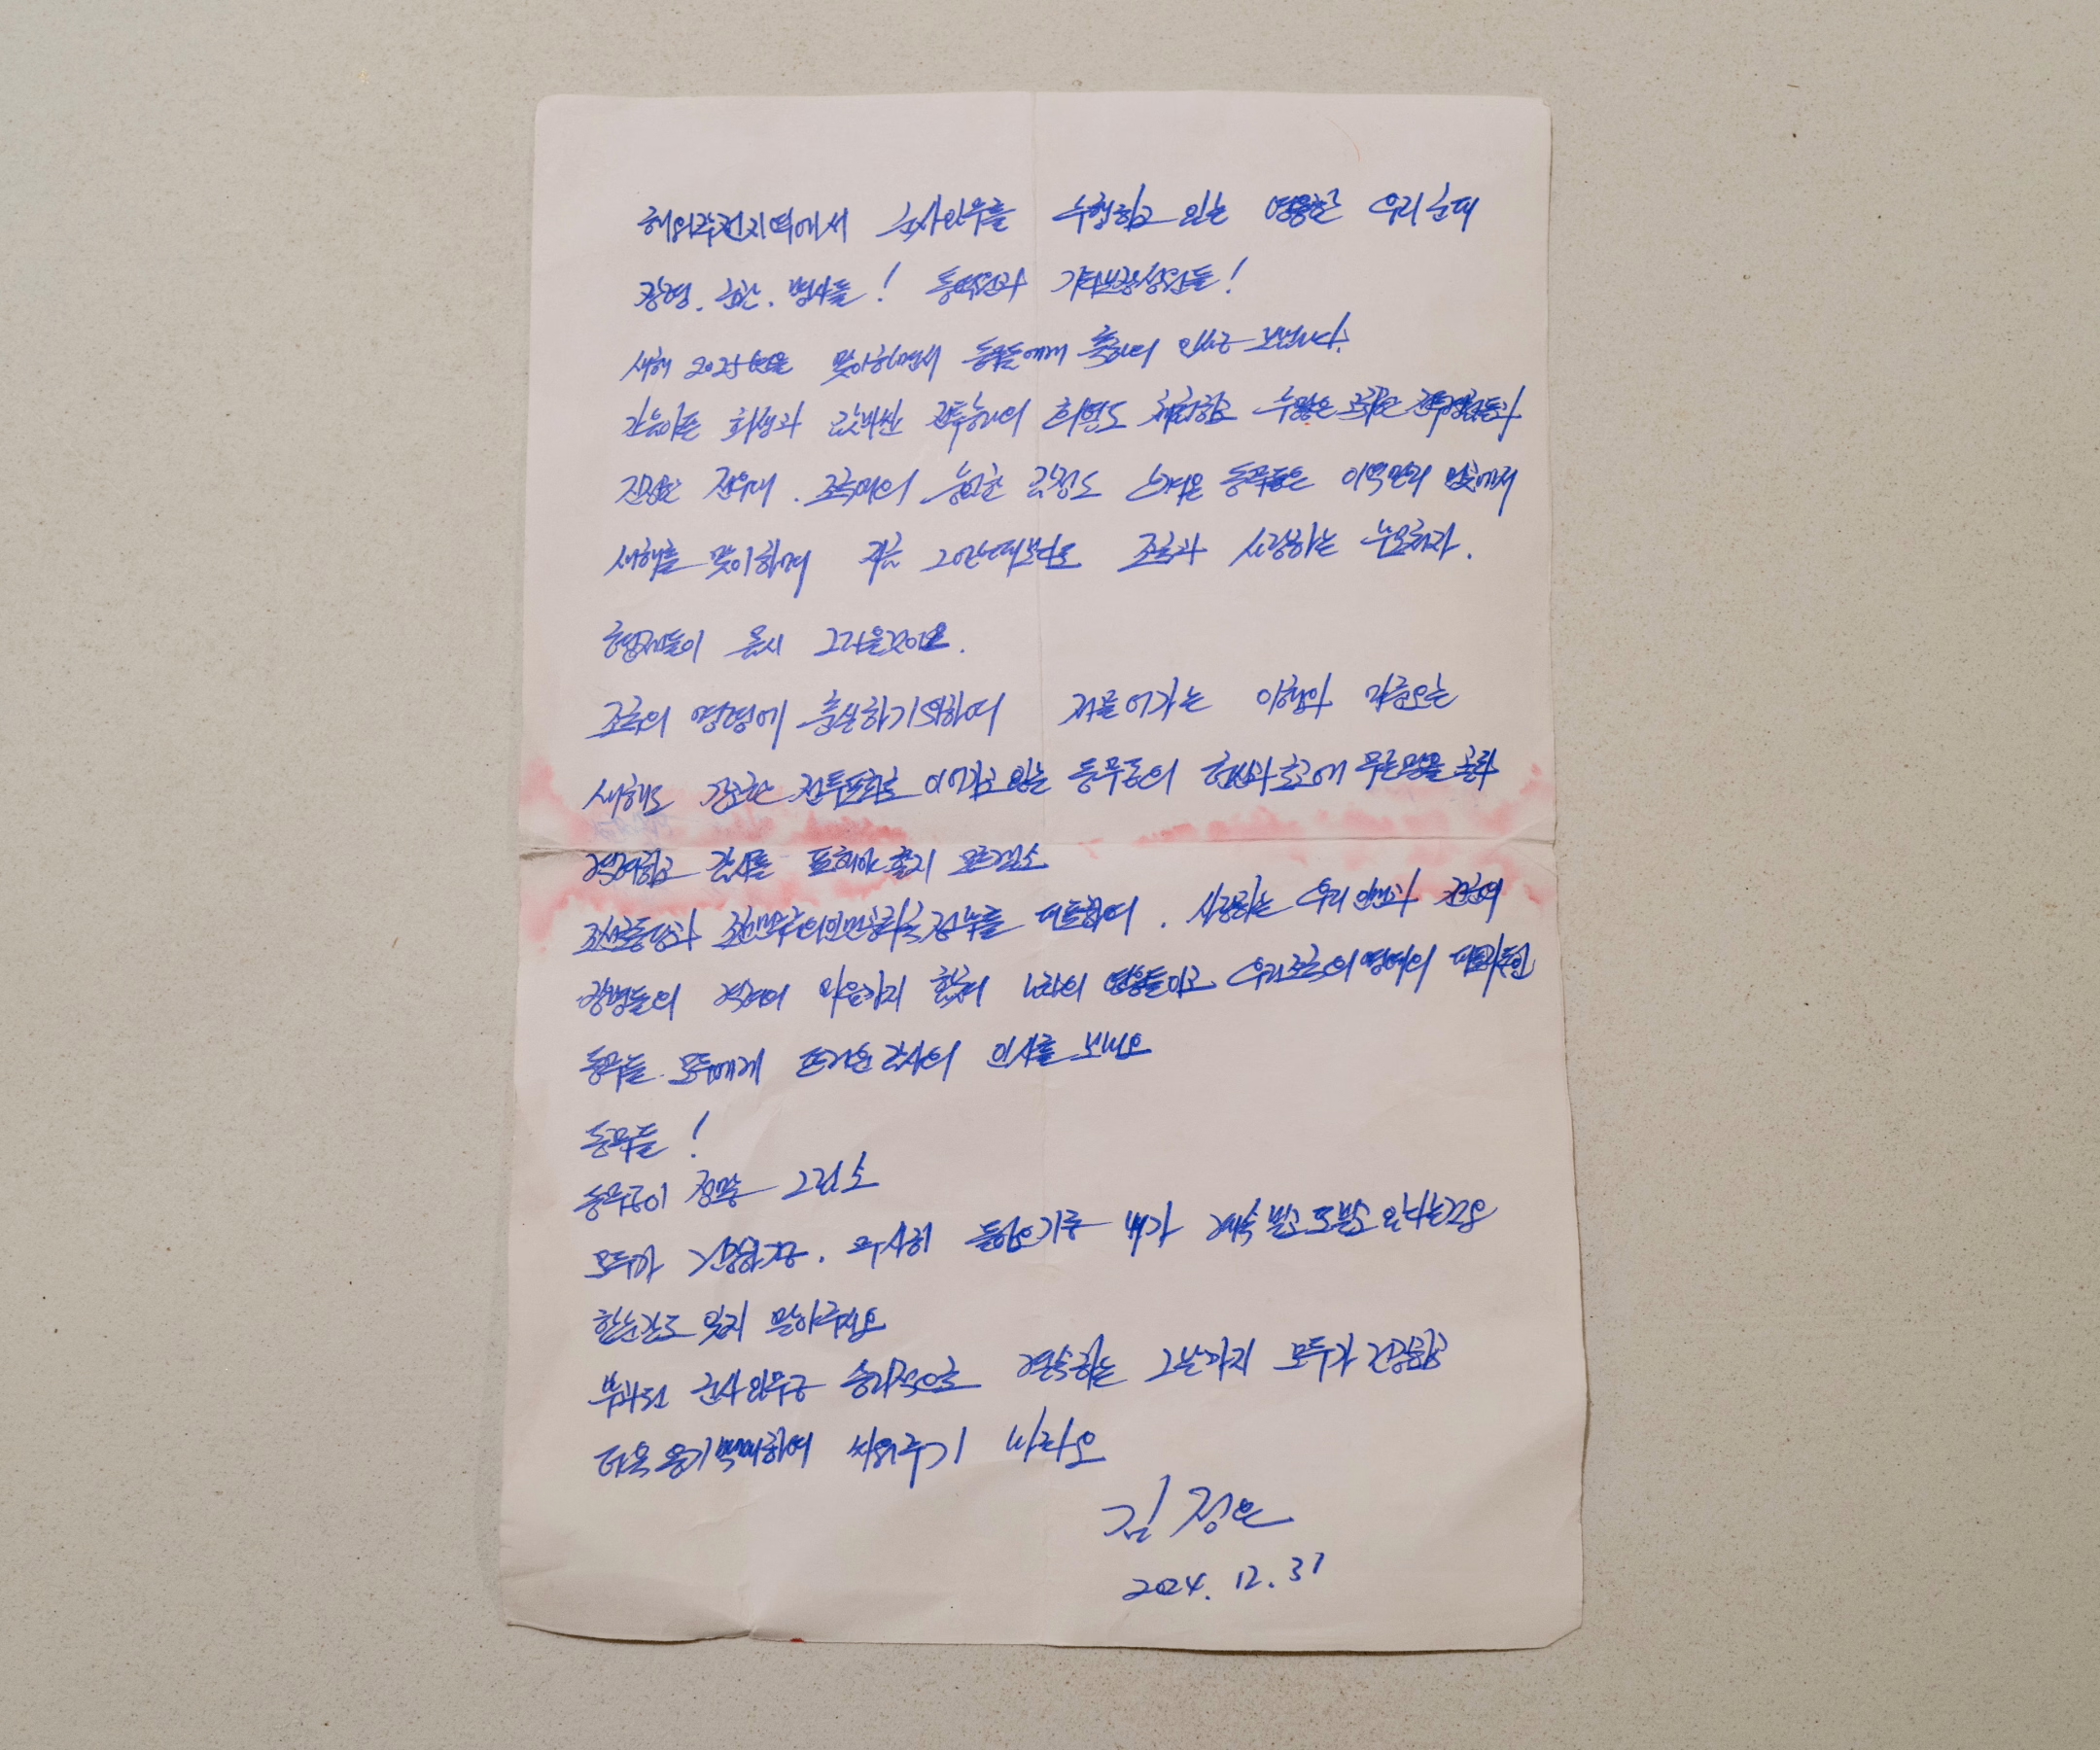 해외작전지역에서 군사임무를 수행하고 있는 영웅한 우리 군대
장령, 군관, 병사들! 동무들과 기타보장성원들!
새해 2025년을 맞이하면서 동무들에게 축하의 인사를 보냅니다.
가슴아픈 희생과 값비싼 전투승리의 희열도 체험하고 수많은 귀중한 전투경험들과
진정한 전우애, 조국애의 숭고한 감정도 느껴온 동무들은 이역만리 먼곳에서
새해를 맞이하며 지금 그 어느때보다도 조국과 사랑하는 부모처자,
형제들이 몹시 그리울것이오.
조국의 명령에 충실하기 위하여 저물어가는 이해와 다가오는
새해도 간고한 전투포화로 이어가고있는 동무들의 헌신과 로고에 무슨 말을 골라
격려하고 감사를 표해야 할지 모르겠소
조선로동당과 조선민주주의인민공화국정부를 대표하여, 사랑하는 우리 인민과 전군의
장병들의 격려의 마음까지 합쳐 나라의 영웅들이고 우리 조국의 명예의 대표자들인
동무들 모두에게 뜨거운 감사의 인사를 보내오
동무들!
동무들이 정말 그립소
모두가 건강하고, 무사히 돌아오기를 내가 계속 빌고 또 빌고 있다는것을
한순간도 잊지 말아주세요
부과된 군사임무를 승리적으로 결속하는 그날까지 모두가 건강하고
더욱 용기백배하여 싸워주기 바라오
김정은
2024. 12. 31